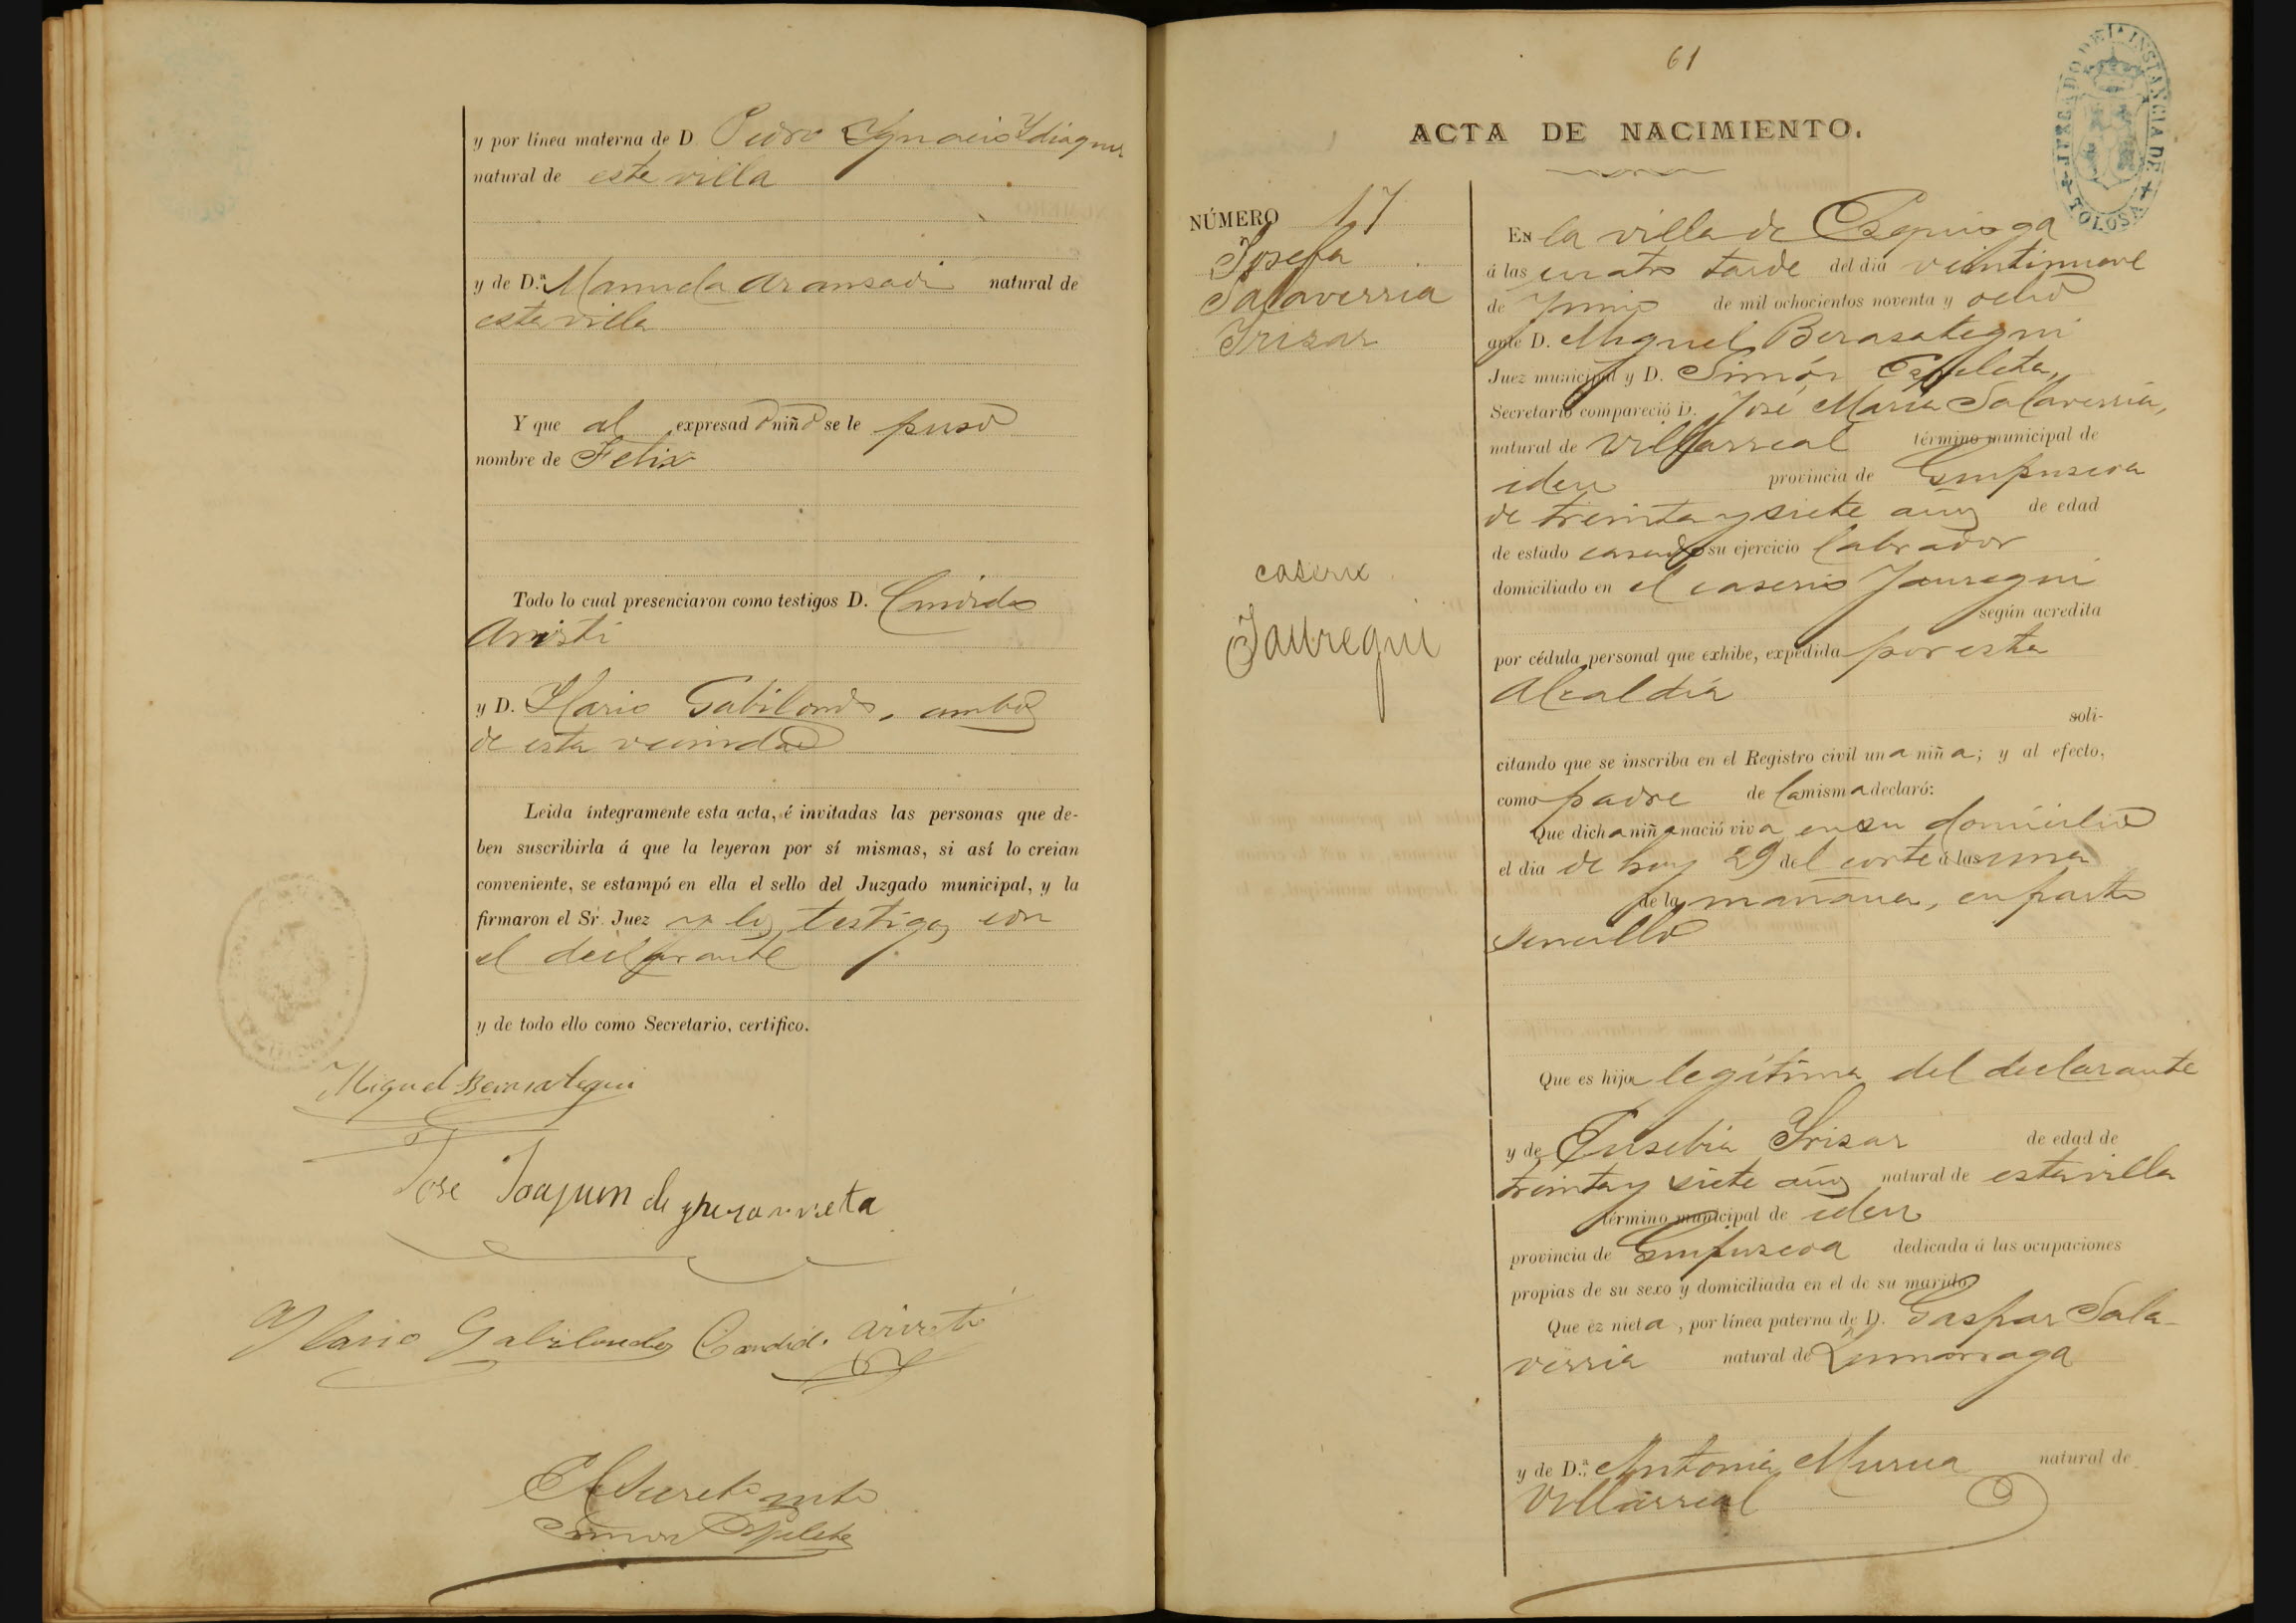 y por línea materna de D. Pedro Ygnacio Ydiaquez
natural de esta villa
y de D.ª Manuela Aransadi natural de
esta villa
Y que al expresado niño se le puso
nombre de Felix
Todo lo cual presenciaron como testigos D. Candido
Arristi
y D. Ylario Gabilondo, ambos
de esta vecindad
Leida íntegramente esta acta, é invitadas las personas que de-
ben suscribirla á que la leyeran por sí mismas, si así lo creian
conveniente, se estampó en ella el sello del Juzgado municipal, y la
firmaron el Sr. Juez y los testigos con
el declarante
y de todo ello como Secretario, certifico.
Miguel Berasategui
Jose Joaquin de
Ylario Gabilondo Candido Arristi
El Secretario
Simon Ezpeleta
61
JUZGADO DE 1ª INSTANCIA DE TOLOSA
ACTA DE NACIMIENTO.
NÚMERO 17
Josefa
Salaverria
Yrizar
caserio
Jauregui
EN la villa de Ezquioga
á las cuatro tarde del dia veintinueve
de Junio de mil ochocientos noventa y ocho
ante D. Miguel Berasategui
Juez municipal y D. Simón Ezpeleta,
Secretario compareció D. José María Salaverria,
natural de Villarreal término municipal de
idem provincia de Guipuzcoa
de treinta y siete años de edad
de estado casado su ejercicio labrador
domiciliado en el caserio Jauregui
según acredita
por cédula personal que exhibe, expedida por esta
Alcaldía
soli-
citando que se inscriba en el Registro civil una niña; y al efecto,
como padre de la misma declaró:
Que dicha niña nació viva en su domicilio
el dia de hoy 29 del corte á las una
de la mañana, en parto
sencillo
Que es hija legítima del declarante
y de Eusebia Yrizar de edad de
treinta y siete años natural de esta villa
término municipal de idem
provincia de Guipuzcoa dedicada á las ocupaciones
propias de su sexo y domiciliada en el de su marido.
Que ez nieta, por línea paterna de D. Gaspar Sala-
verria natural de Zumarraga
y de D.ª Antonia Murua natural de
Villarreal